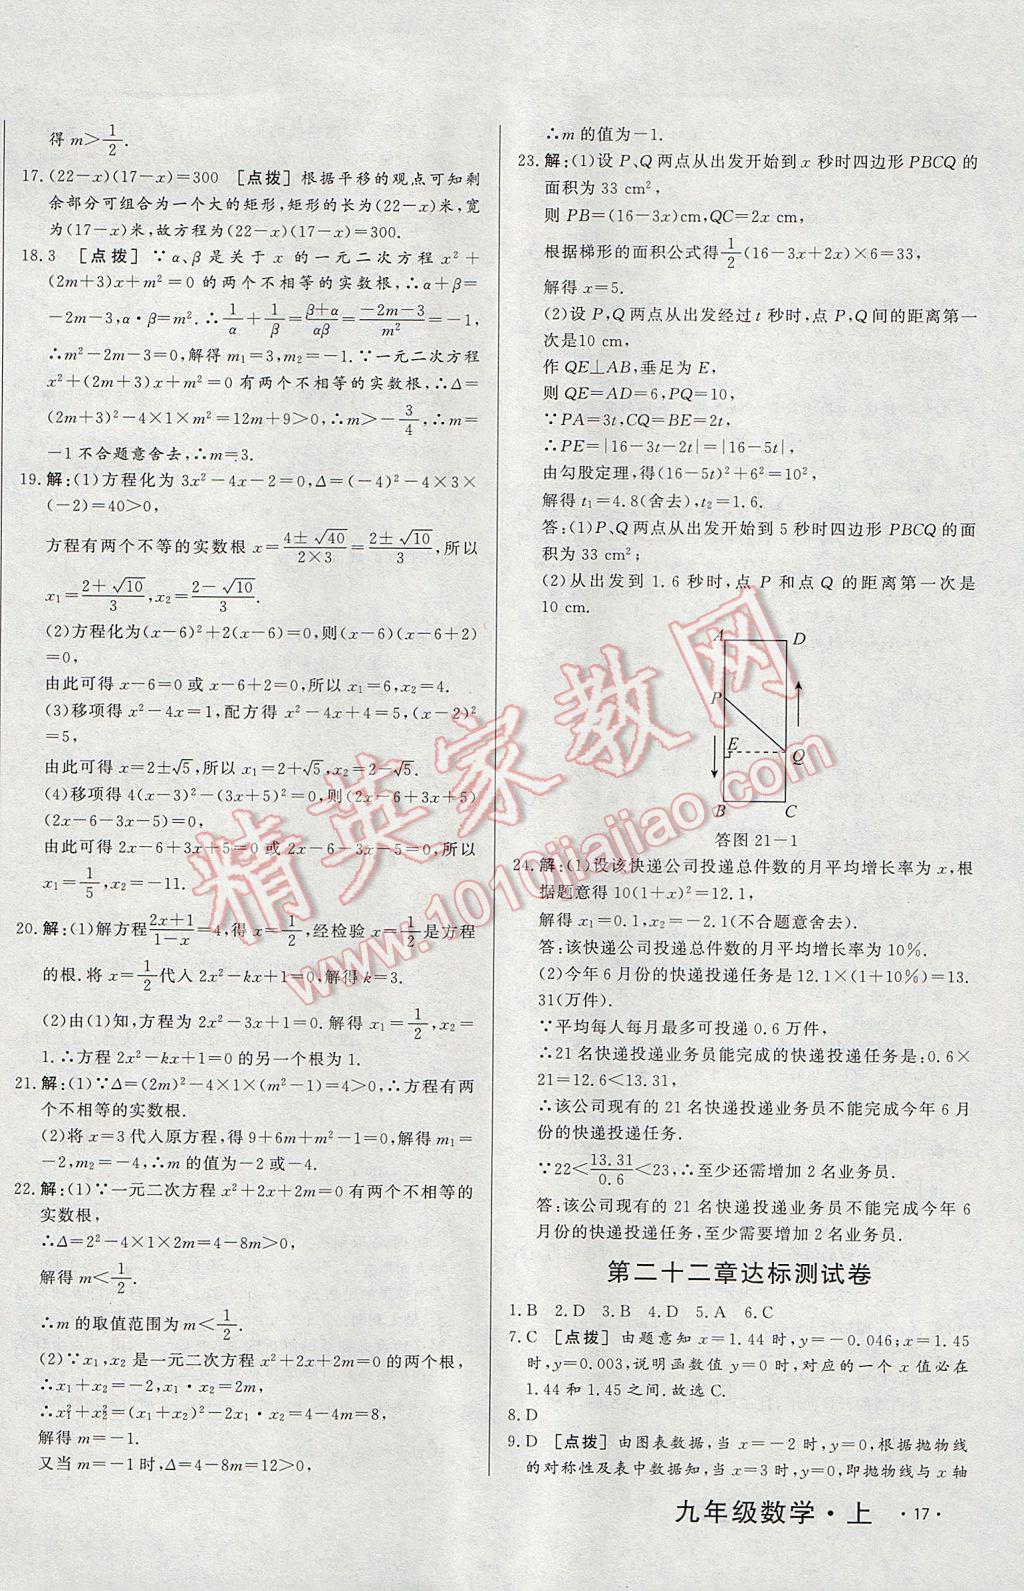 得 m＞1/2.
17.(22－x)(17－x)＝300 [点拨] 根据平移的观点可知剩
余部分可组合为一个大的矩形,矩形的长为(22－x)米,宽
为(17－x)米,故方程为(22－x)(17－x)＝300.
18.3 [点拨] ∵α、β 是关于 x 的一元二次方程 x²＋
(2m＋3)x＋m²＝0 的两个不相等的实数根,∴α＋β＝
－2m－3,α·β＝m².∴1/α＋1/β＝(β＋α)/αβ＝(－2m－3)/m²＝－1,
∴m²－2m－3＝0,解得 m₁＝3,m₂＝－1.∵一元二次方程
x²＋(2m＋3)x＋m²＝0 有两个不相等的实数根,∴Δ＝
(2m＋3)²－4×1×m²＝12m＋9＞0,∴m＞－3/4,∴m＝
－1 不合题意舍去,∴m＝3.
19.解:(1)方程化为 3x²－4x－2＝0,Δ＝(－4)²－4×3×
(－2)＝40＞0,
方程有两个不等的实数根 x＝(4±√40)/(2×3)＝(2±√10)/3,所以
x₁＝(2＋√10)/3,x₂＝(2－√10)/3.
(2)方程化为(x－6)²＋2(x－6)＝0,则(x－6)(x－6＋2)
＝0,
由此可得 x－6＝0 或 x－6＋2＝0,所以 x₁＝6,x₂＝4.
(3)移项得 x²－4x＝1,配方得 x²－4x＋4＝5,(x－2)²
＝5,
由此可得 x＝2±√5,x₁＝2＋√5,x₂＝2－√5.
(4)移项得 4(x－3)²－(3x＋5)＝0,则(2x－6＋3x＋5)
(2x－6－3x－5)＝0,
由此可得 2x－6＋3x＋5＝0 或 2x－6－3x－5＝0,所以
x₁＝1/5,x₂＝－11.
20.解:(1)解方程(2x＋1)/(1－x)＝4,得 x＝1/2,经检验 x＝1/2是方程
的根.将 x＝1/2代入 2x²－kx＋1＝0,解得 k＝3.
(2)由(1)知,方程为 2x²－3x＋1＝0.解得 x₁＝1/2,x₂＝
1.∴方程 2x²－kx＋1＝0 的另一个根为 1.
21.解:(1)∵Δ＝(2m)²－4×1×(m²－1)＝4＞0,∴方程有两
个不相等的实数根.
(2)将 x＝3 代入原方程,得 9＋6m＋m²－1＝0,解得 m₁＝
－2,m₂＝－4,∴m 的值为－2 或－4.
22.解:(1)∵一元二次方程 x²＋2x＋2m＝0 有两个不相等的
实数根,
∴Δ＝2²－4×1×2m＝4－8m＞0,
解得 m＜1/2.
∴m 的取值范围为 m＜1/2.
(2)∵x₁,x₂ 是一元二次方程 x²＋2x＋2m＝0 的两个根,
∴x₁＋x₂＝－2,x₁·x₂＝2m,
∴x₁²＋x₂²＝(x₁＋x₂)²－2x₁·x₂＝4－4m＝8,
解得 m＝－1.
又当 m＝－1 时,Δ＝4－8m＝12＞0,
∴m 的值为－1.
23.解:(1)设 P、Q 两点从出发开始到 x 秒时四边形 PBCQ 的
面积为 33 cm²,
则 PB＝(16－3x)cm,QC＝2x cm,
根据梯形的面积公式得1/2(16－3x＋2x)×6＝33,
解得 x＝5.
(2)设 P,Q 两点从出发经过 t 秒时,点 P,Q 间的距离第一
次是10 cm,
作 QE⊥AB,垂足为 E,
则 QE＝AD＝6,PQ＝10,
∵PA＝3t,CQ＝BE＝2t,
∴PE＝|16－3t－2t|＝|16－5t|,
由勾股定理,得(16－5t)²＋6²＝10²,
解得 t₁＝4.8(舍去),t₂＝1.6.
答:(1)P、Q 两点从出发开始到 5 秒时四边形 PBCQ 的面
积为 33 cm²;
(2)从出发到 1.6 秒时,点 P 和点 Q 的距离第一次是
10 cm.
A D
P
E
Q
B C
答图 21－1
24.解:(1)设该快递公司投递总件数的月平均增长率为 x,根
据题意得 10(1＋x)²＝12.1,
解得 x₁＝0.1,x₂＝－2.1(不合题意舍去)
答:该快递公司投递总件数的月平均增长率为 10%.
(2)今年 6 月份的快递投递任务是 12.1×(1＋10%)＝13.
31(万件).
∵平均每人每月最多可投递 0.6 万件,
∴21 名快递投递业务员能完成的快递投递任务是:0.6×
21＝12.6＜13.31,
∴该公司现有的 21 名快递投递业务员不能完成今年 6 月
份的快递投递任务.
∵22＜13.31/0.6＜23,∴至少还需增加 2 名业务员.
答:该公司现有的 21 名快递投递业务员不能完成今年 6
月份的快递投递任务,至少需要增加 2 名业务员.
第二十二章达标测试卷
1.B 2.D 3.B 4.D 5.A 6.C
7.C [点拨] 由题意知 x＝1.44 时,y＝－0.046;x＝1.45
时,y＝0.003,说明函数值 y＝0 时,对应的一个 x 值必在
1.44 和 1.45 之间.故选 C.
8.D
9.D [点拨] 由图表数据,当 x＝－2 时,y＝0,根据抛物线
的对称性及表中数据知,当 x＝3 时,y＝0,即抛物线与 x 轴
九年级数学·上 ·17·
精英家教网
www.1010jiajiao.com